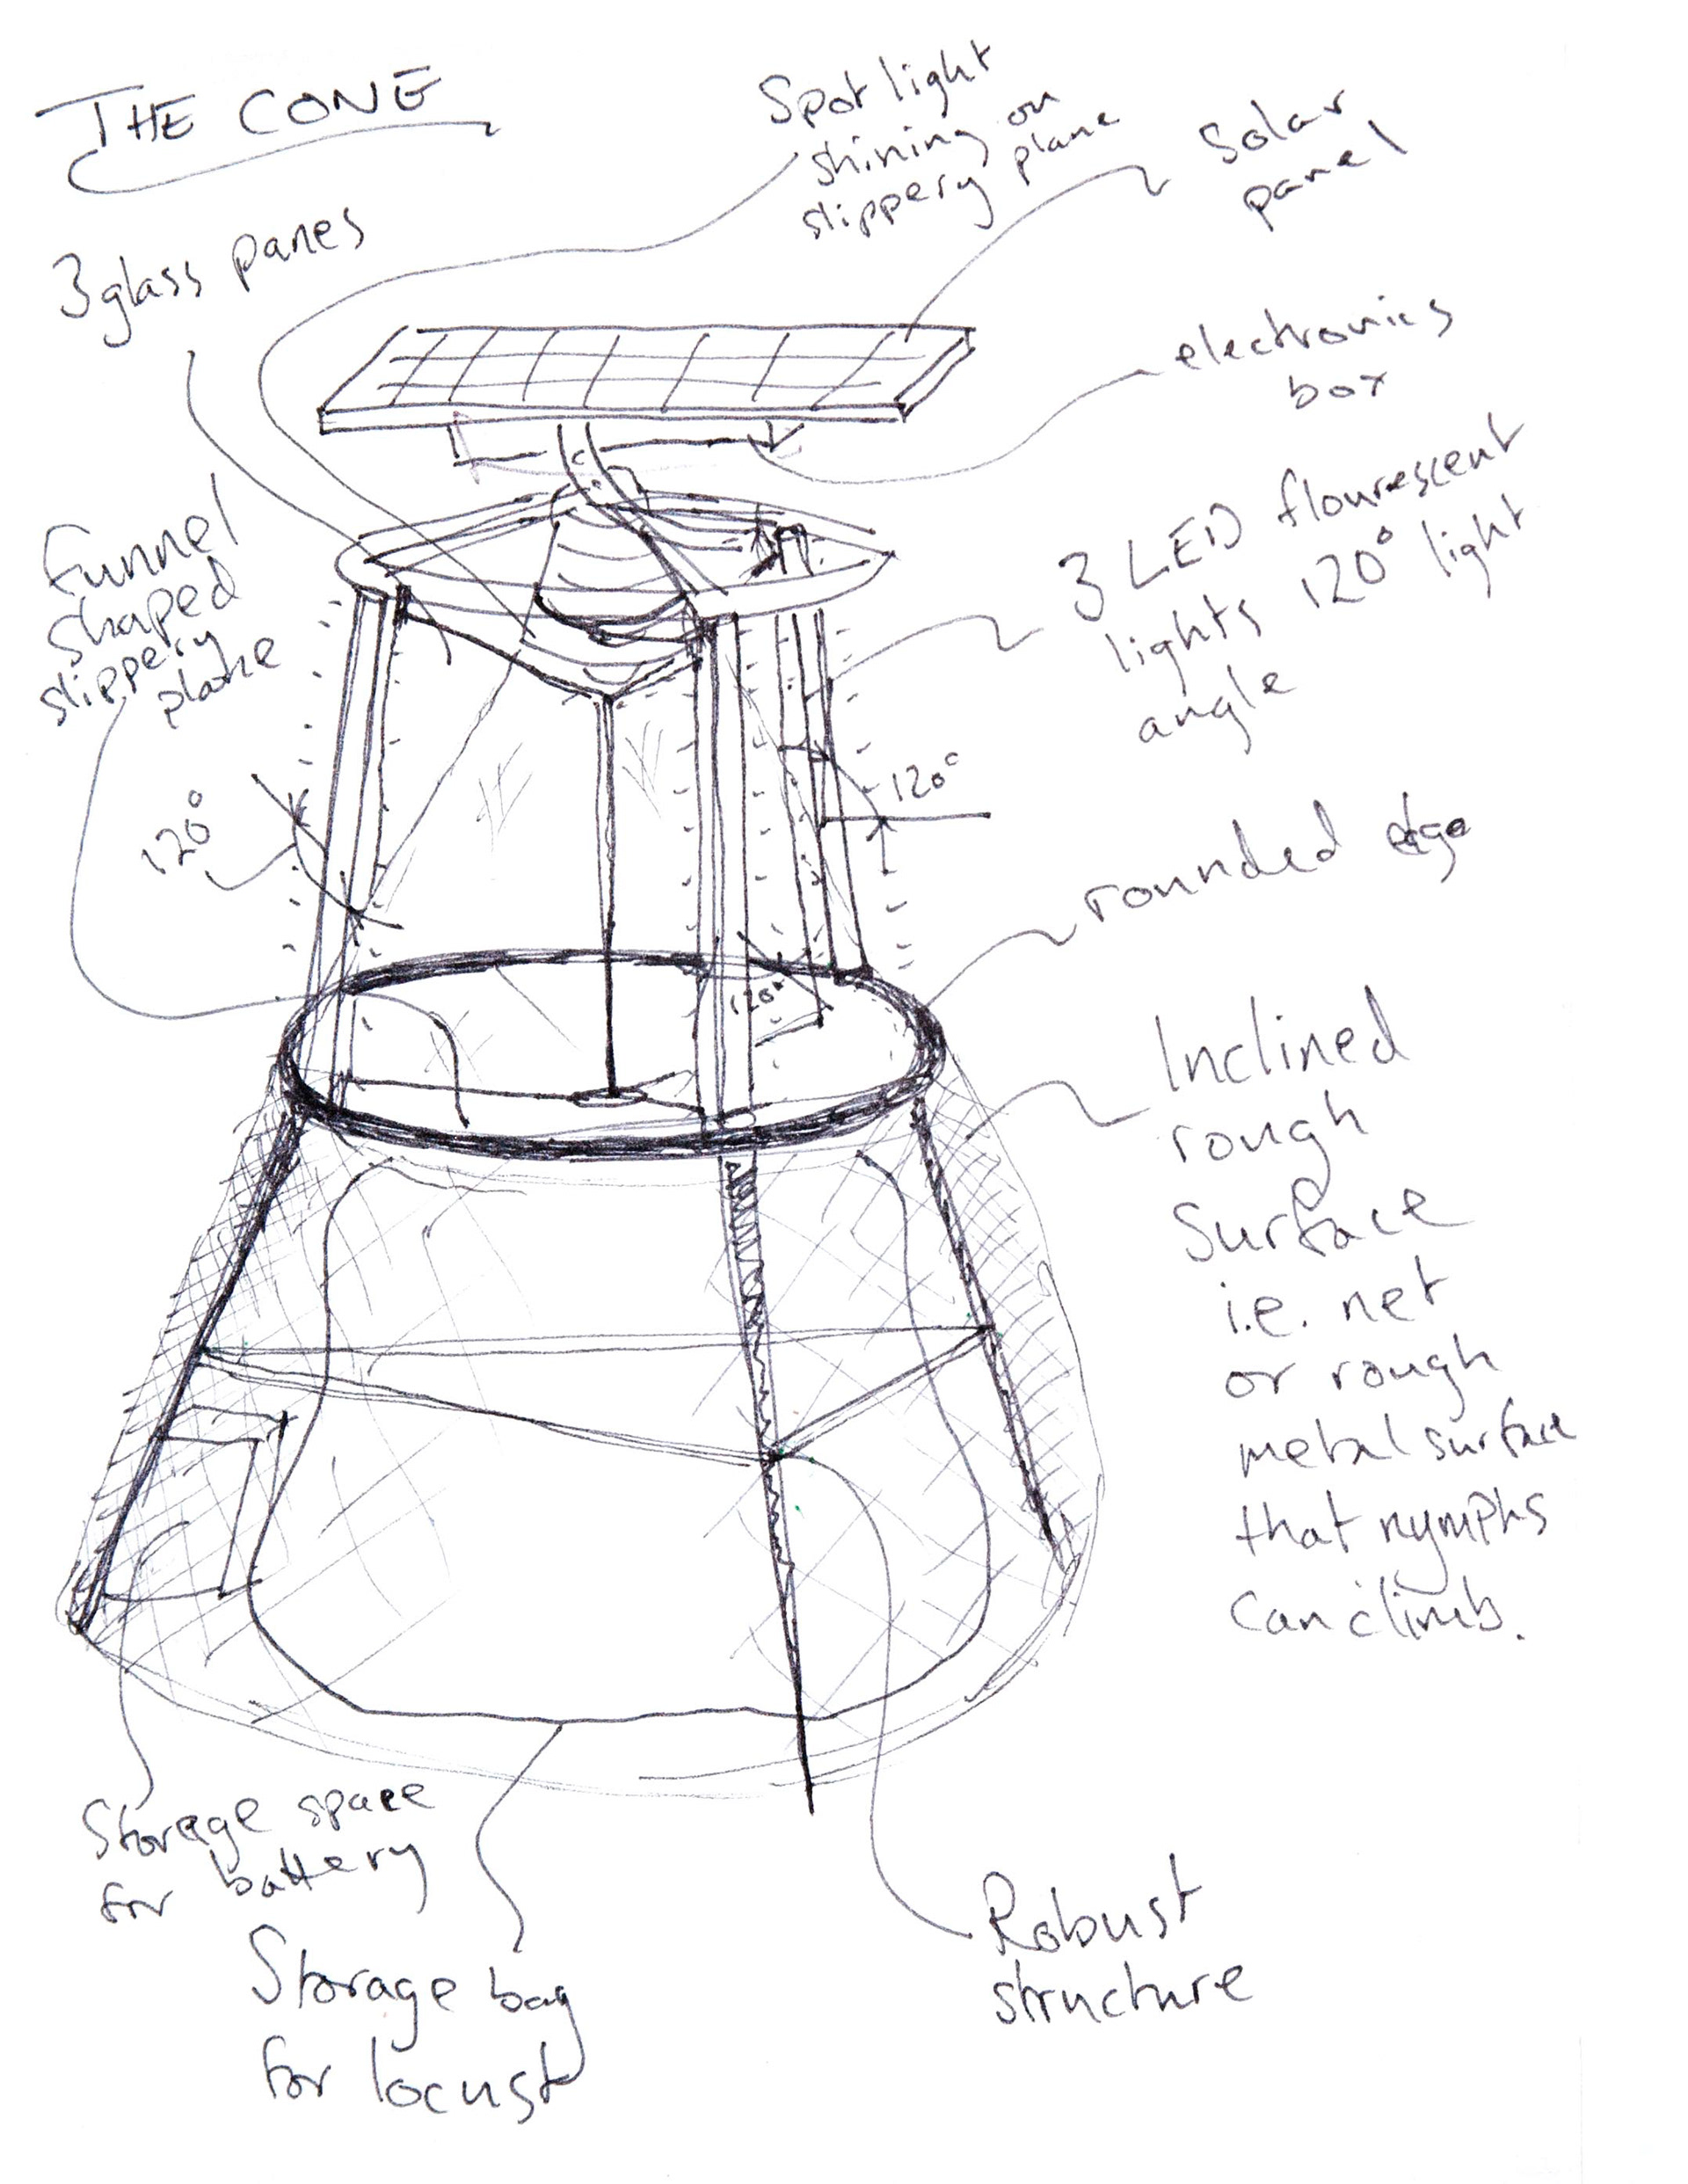 THE CONE
Spot light
shining on
slippery plane
Solar
panel
3 glass panes
electronics
box
funnel
shaped
slippery
plane
3 LED flourescent
lights 120° light
angle
120°
120°
rounded edge
120°
Inclined
rough
Surface
i.e. net
or rough
metal surface
that nymphs
can climb.
Storage space
for battery
Storage bag
for locust
Robust
structure